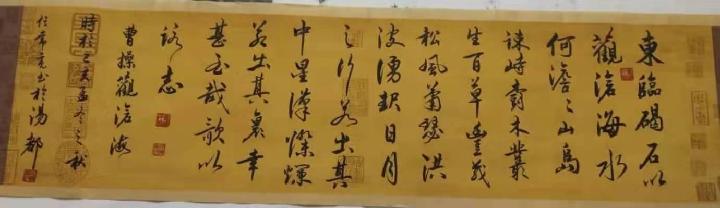 東臨碣石以
觀滄海水
何澹々山島
竦峙樹木叢
生百草豐茂
秋風蕭瑟洪
波湧起日月
之行若出其
中星漢燦爛
若出其裏幸
甚至哉歌以
詠志
曹操觀滄海
時於己亥孟冬之秋
任書於湯都